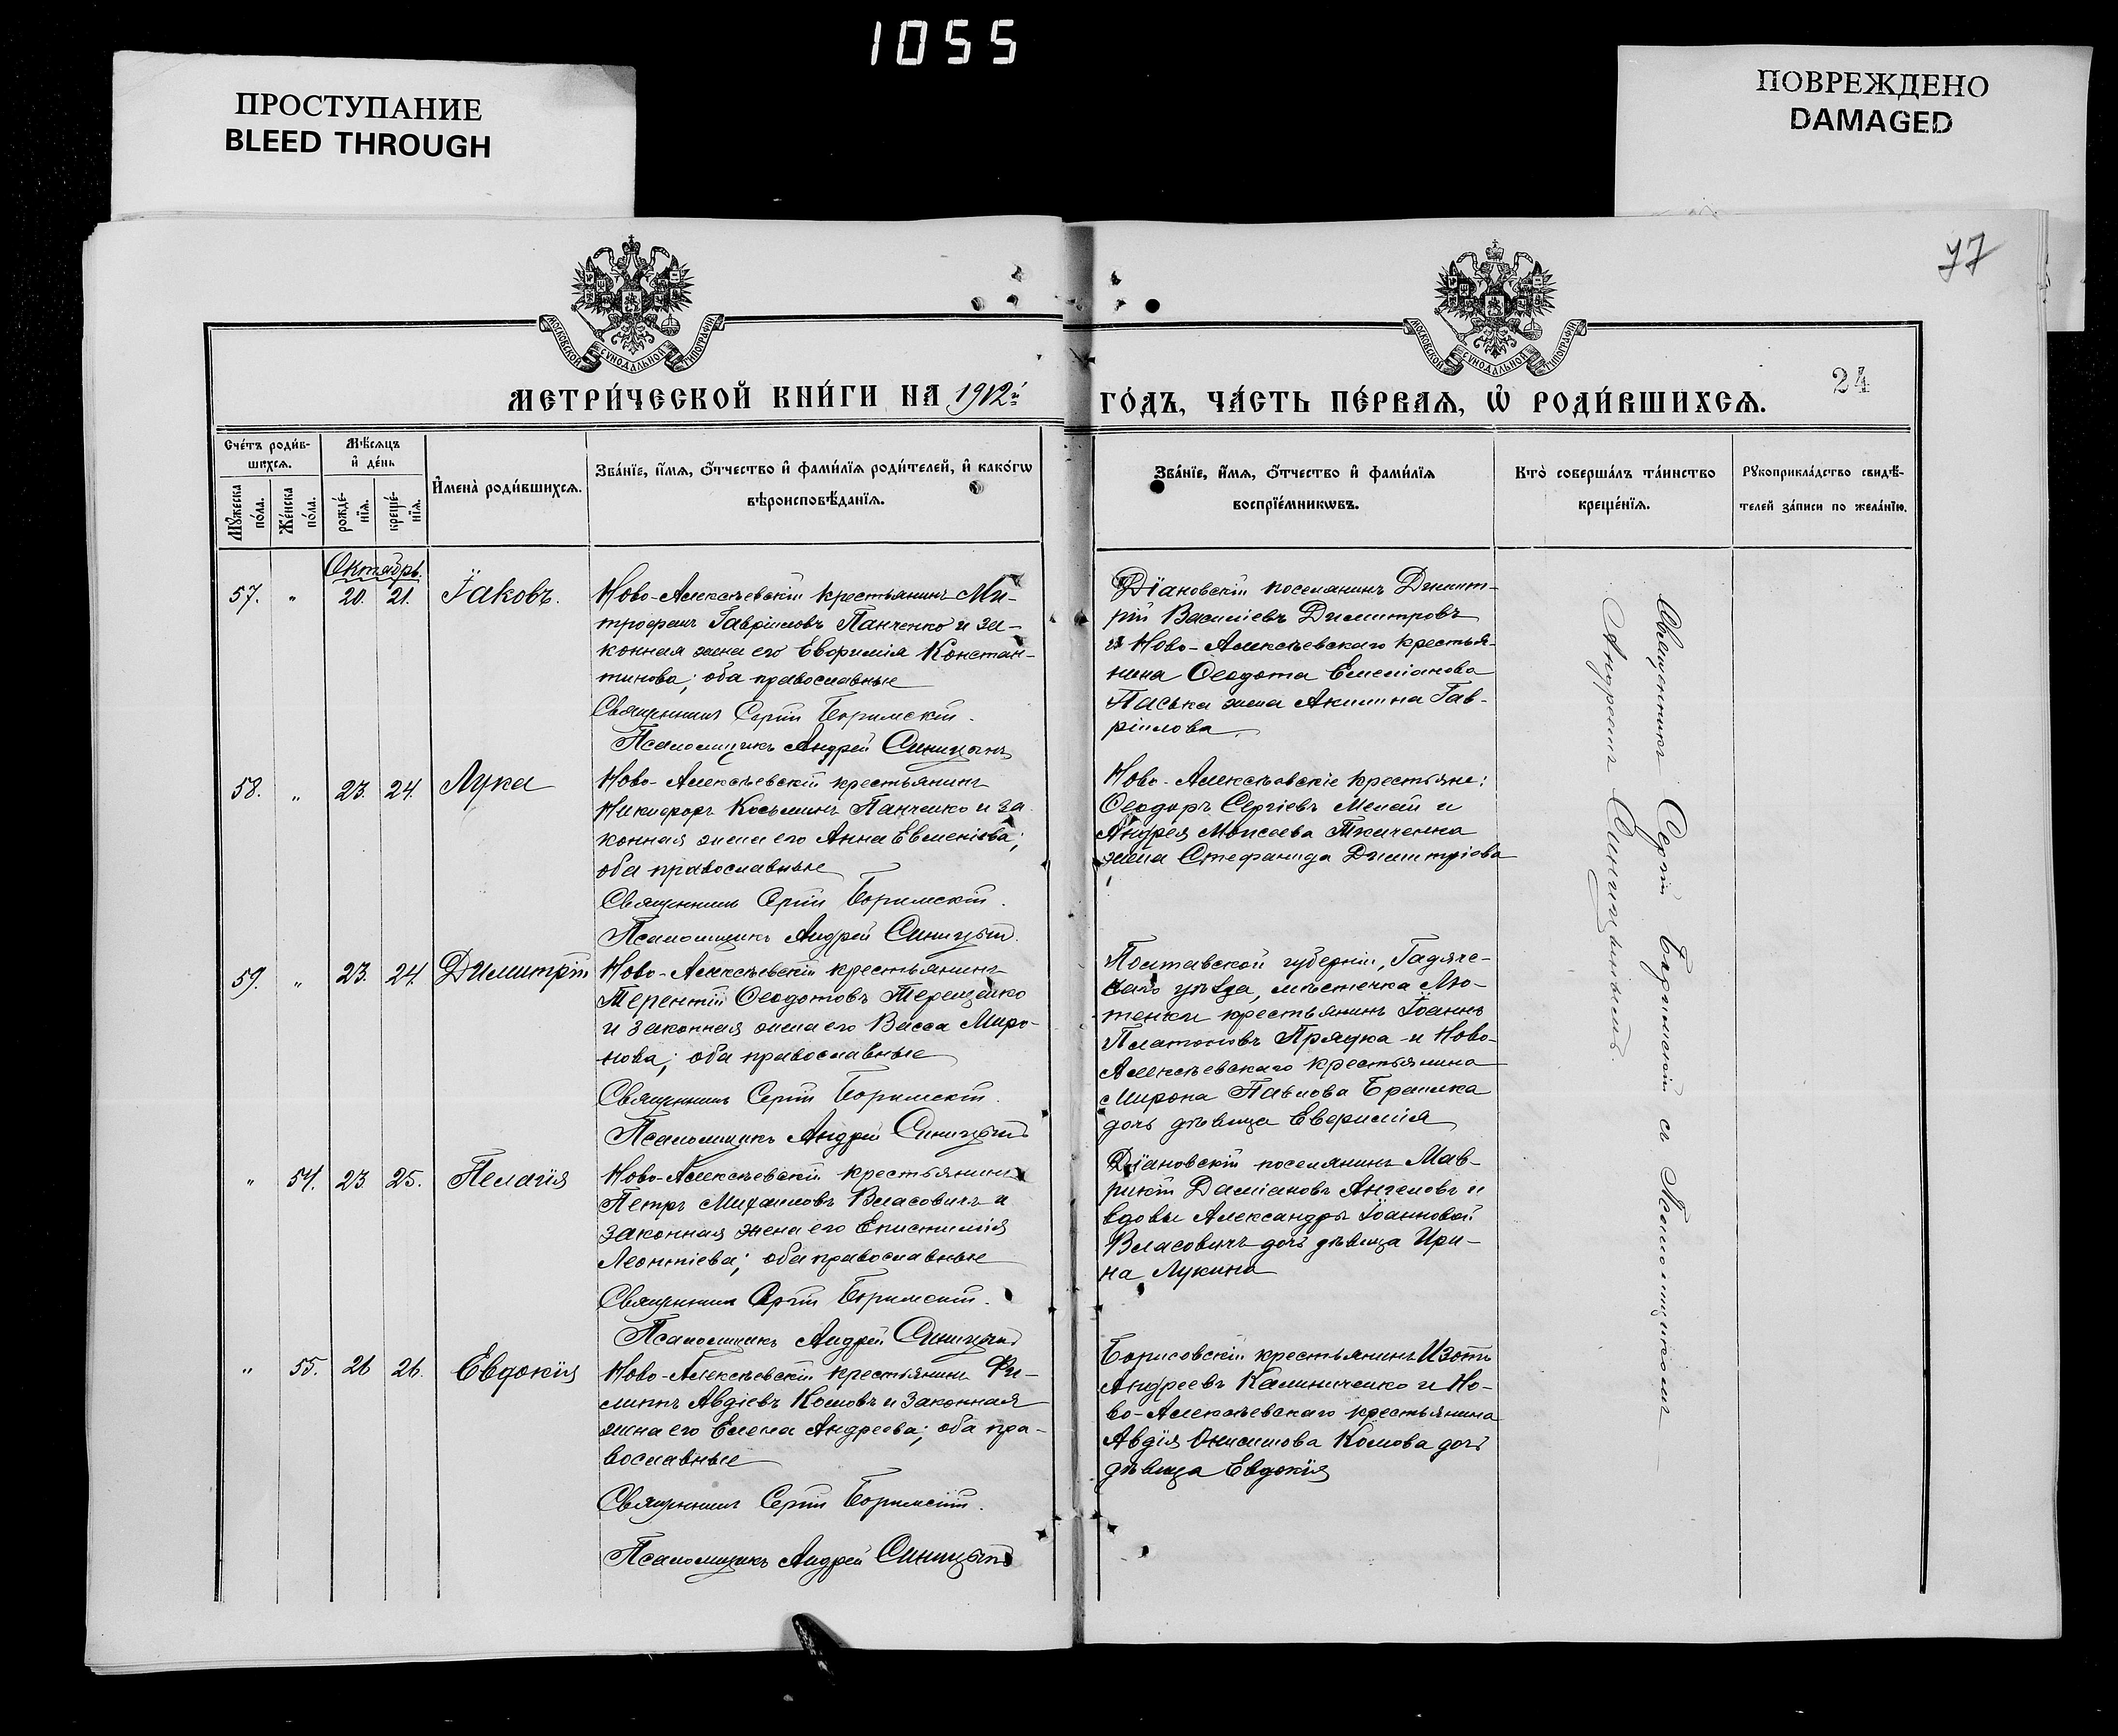 1055
ПРОСТУПАНИЕ
BLEED THROUGH
ПОВРЕЖДЕНО
DAMAGED
77
МОСКОВСКОЙ СУНОДАЛЬНОЙ ТИПОГРАФІИ
МОСКОВСКОЙ СУНОДАЛЬНОЙ ТИПОГРАФІИ
24
МЕТРИ́ЧЕСКОЙ КНИ́ГИ НА 1912й ГО́ДЪ, ЧА́СТЬ ПЕ́РВАѦ, Ѡ҆ РОДИ́ВШИХСѦ.
Сче́тъ роди́в-
шихсѧ.
Мѣ́сѧцъ
и҆ де́нь
Мꙋ́жеска по́ла.
Же́нска по́ла.
рожде́-нїѧ.
креще́-нїѧ.
И҆мена̀ роди́вшихсѧ.
Зва́нїе, и҆́мѧ, ѻ҆́тчество и҆ фами́лїѧ роди́телей, и҆ како́гѡ
вѣроисповѣ́данїѧ.
Зва́нїе, и҆́мѧ, ѻ҆́тчество и҆ фами́лїѧ
воспрїе́мникѡвъ.
Кто̀ соверша́лъ та́инство
креще́нїѧ.
Рꙋкоприкла́дство свидѣ́-
телей за́писи по жела́нїю.
Октябрь.
57. " 20. 21. Іаковъ.
Ново-Алексѣевскій крестьянинъ Ми-
трофанъ Гавріиловъ Панченко и за-
конная жена его Евфимія Констан-
тинова; оба православные
Священникъ Сергій Боримскій.
Псаломщикъ Андрей Синицынъ
Діановскій поселянинъ Димит-
рій Василіевъ Димитровъ
и Ново-Алексѣевскаго крестья-
нина Ѳеодота Емеліанова
Паська жена Акилина Гав-
ріилова.
58. " 23. 24. Лука
Ново-Алексѣевскій крестьянинъ
Никифоръ Косьминъ Панченко и за
конная жена его Анна Евменіева;
оба православные
Священникъ Сергій Боримскій.
Псаломщикъ Андрей Синицынъ.
Ново-Алексѣевскіе крестьяне:
Ѳеодоръ Сергіевъ и
Андрея Моисеева Ткаченка
жена Стефанида Димитріева
59. " 23. 24. Димитрій
Ново-Алексѣевскій крестьянинъ
Терентій Ѳеодотовъ Терещенко
и законная жена его Васса Миро-
нова; оба православные
Священникъ Сергій Боримскій.
Псаломщикъ Андрей Синицынъ
Полтавской губерніи, Гадяче-
скаго уѣзда, мѣстечка Лю-
теньки крестьянинъ Іоаннъ
Платоновъ Прядка и Ново-
Алексѣевскаго крестьянина
Мирона Павлова
дочь дѣвица Евфимія
" 54. 23. 25. Пелагія
Ново-Алексѣевскій крестьянинъ
Петръ Михаиловъ Власовичъ и
законная жена его Епистимія
Леонтіева; оба православные
Священникъ Сергій Боримскій.
Псаломщикъ Андрей Синицынъ
Діановскій поселянинъ Мав-
рикій Даміановъ Ангеловъ и
вдовы Александры Іоанновой
Власовичъ дочь дѣвица Ири-
на Лукина
" 55. 26 26. Евдокія
Ново-Алексѣевскій крестьянинъ Фи-
липпъ Авдіевъ Комовъ и законная
жена его Елена Андреева; оба пра-
вославные
Священникъ Сергій Боримскій.
Псаломщикъ Андрей Синицынъ
Борисовскій крестьянинъ Изотъ
Андреевъ Калиниченко и Но-
во-Алексѣевскаго крестьянина
Авдія Онисимова Комова дочь
дѣвица Евдокія
Священникъ Сергій Боримскій съ Псаломщикомъ
Андреемъ Синицынымъ.